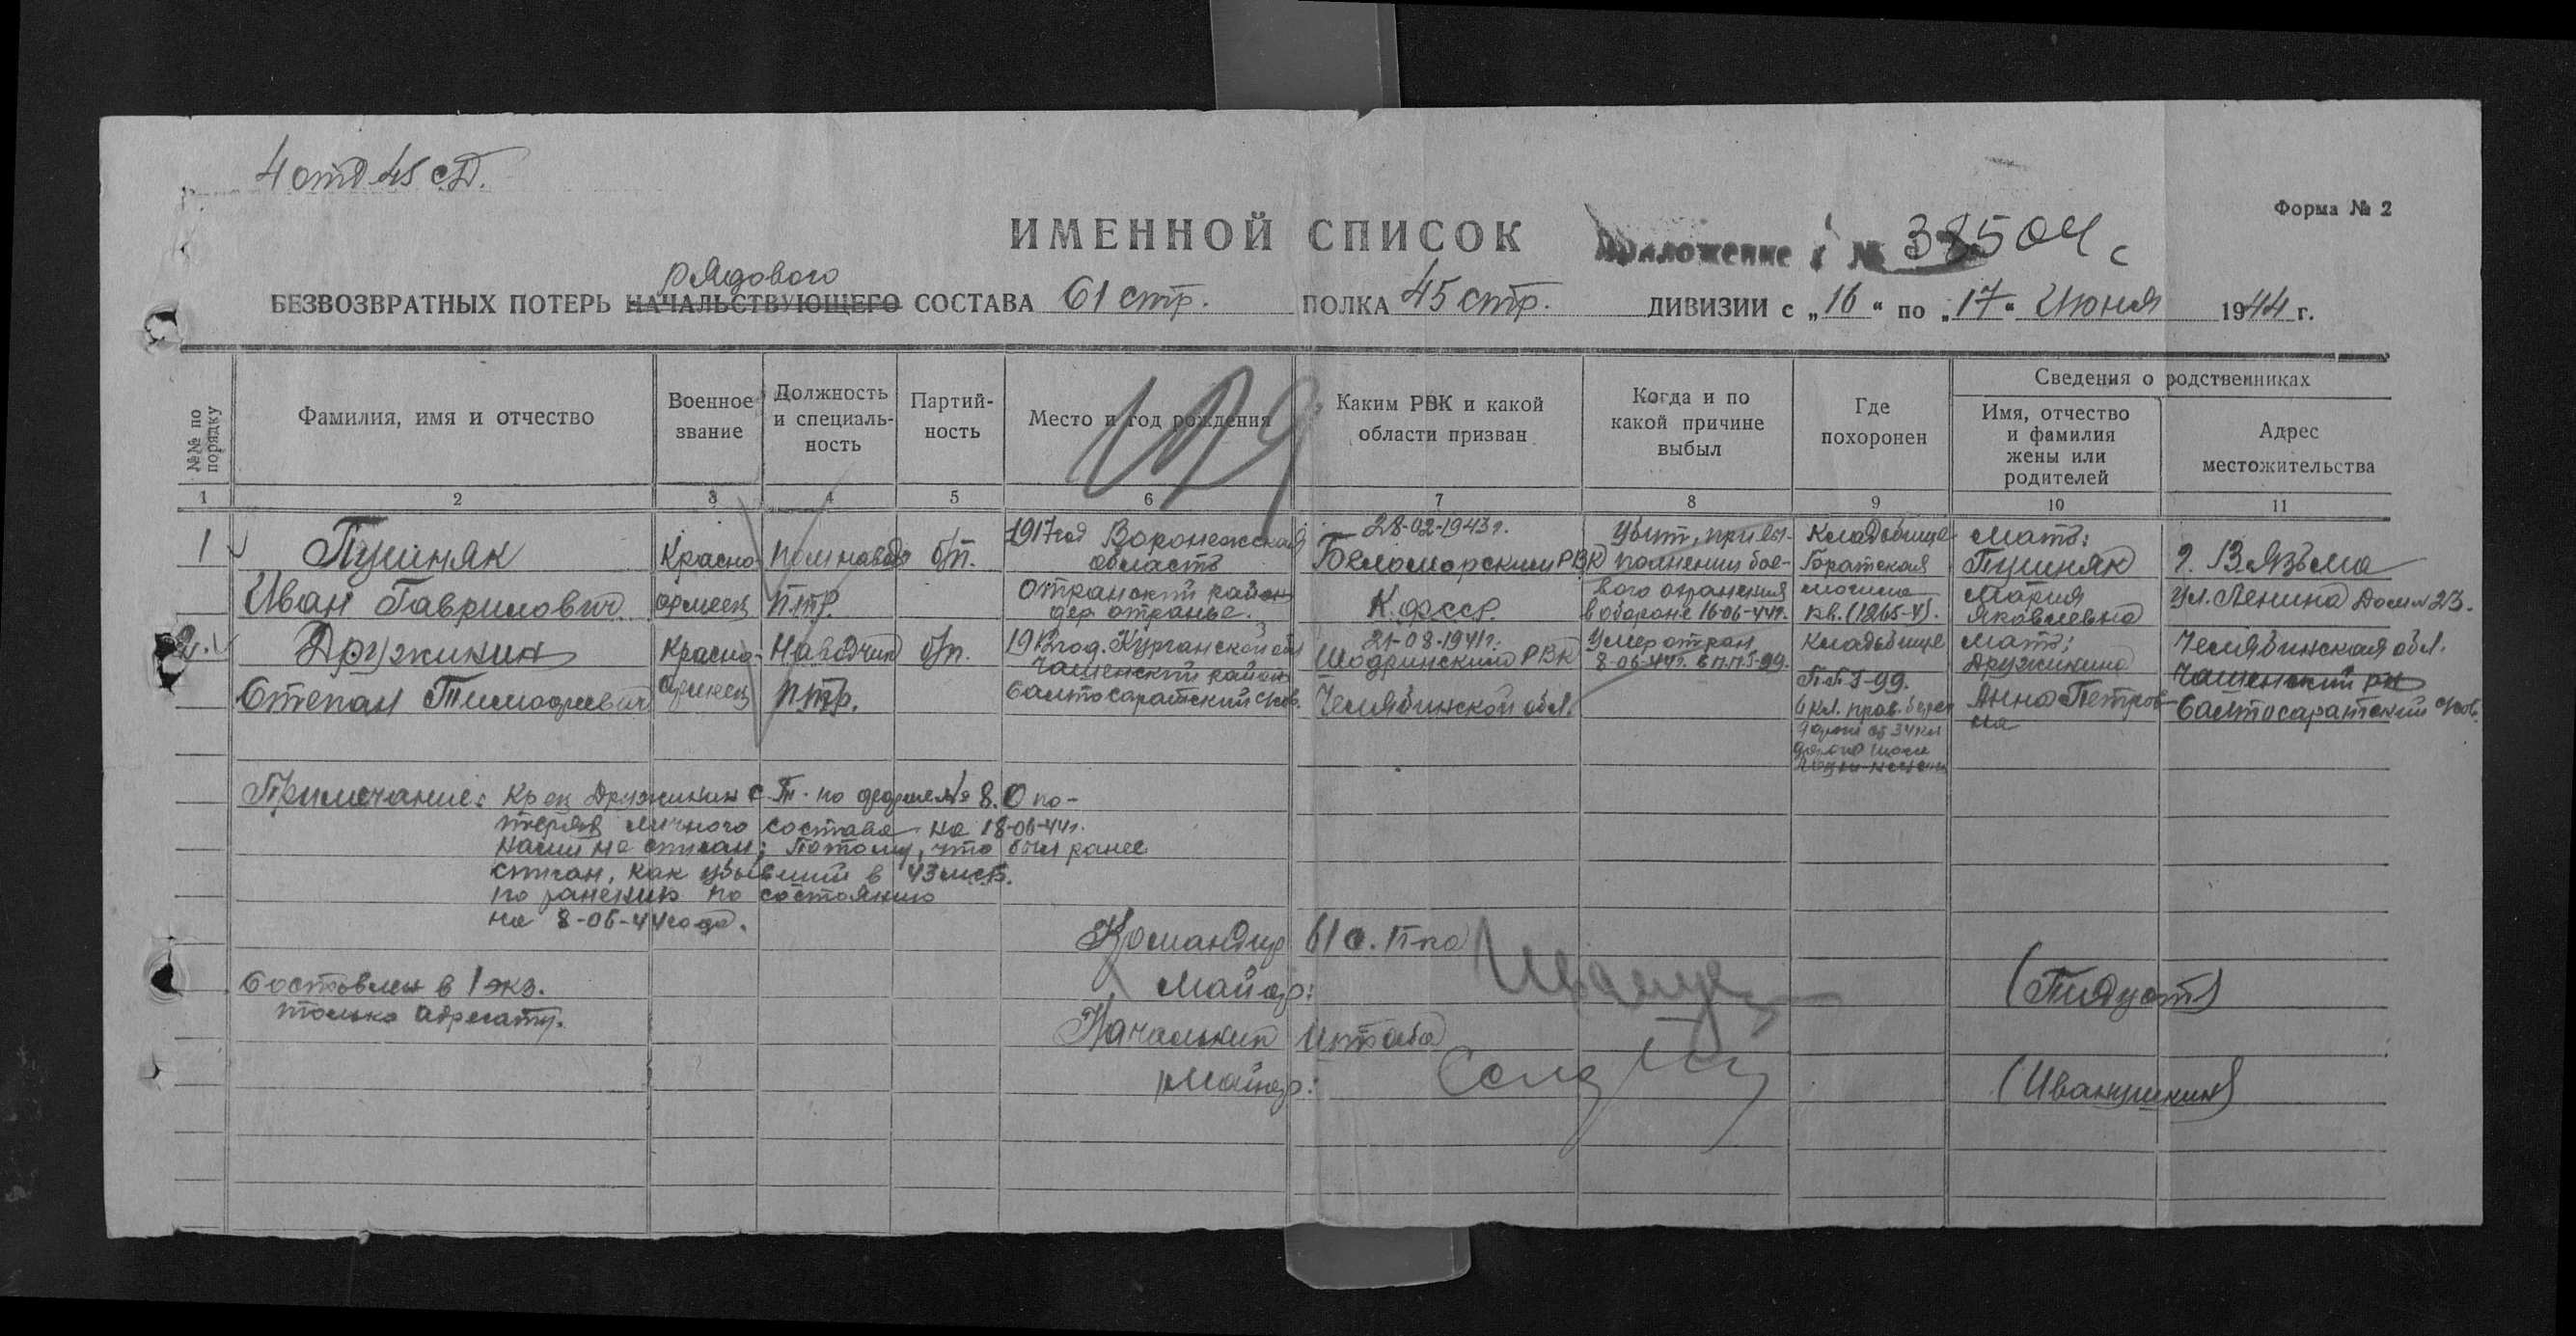 4 отд 45 сД.
Форма № 2
ИМЕННОЙ СПИСОК
Приложение № 38504с
рядового
БЕЗВОЗВРАТНЫХ ПОТЕРЬ НАЧАЛЬСТВУЮЩЕГО СОСТАВА 61 стр. ПОЛКА 45 стр. ДИВИЗИИ с „16“ по „17“ Июня 1944 г.
№№ по порядку
Фамилия, имя и отчество
Военное звание
Должность и специальность
Партийность
Место и год рождения
Каким РВК и какой области призван
Когда и по какой причине выбыл
Где похоронен
Сведения о родственниках
Имя, отчество и фамилия жены или родителей
Адрес местожительства
1 2 3 4 5 6 7 8 9 10 11
1
Пушняк
Иван Гаврилович
Красно
армеец
пом навод
ПТР.
б/п.
1917 год Воронежская
область
отранский район
дер отранье.
28-02-1943 г.
Беломорским РВК
К.ФССР.
Убит, при вы-
полнении бое-
вого охранения
в обороне 16-06-44г.
Кладбище
Братская
могила
кв. (1265-4).
мать:
Пушняк
Мария
Яковлевна
г. Вязьма
ул. Ленина Дом № 23.
2.
Дружинин
Степан Тимофеевич
Красно-
армеец
Наводчик
ПТР.
б/п.
1913 год. Курганской обл
Чашенский район
21-08-1941г.
Шадринским РВК
Челябинской обл.
Умер от ран
8-06-44г. в ППГ-99.
Кладбище
ППГ-99.
мать:
Дружинина
Анна Петров-
на
Челябинская обл.
Чашенский рн
Примечание: Кр-ец Дружинин С.Т. по форме № 8. О по-
терях личного состава на 18-06-44г.
нами не списан; Потому, что был ранее
списан, как убывший в 43 мсб.
по ранению по состоянию
на 8-06-44 года.
Командир 61 с. п-ка
Майор:
(Пидуст)
Составлен в 1 экз.
только адресату.
Начальник штаба
Майор:
(Иванушкин)